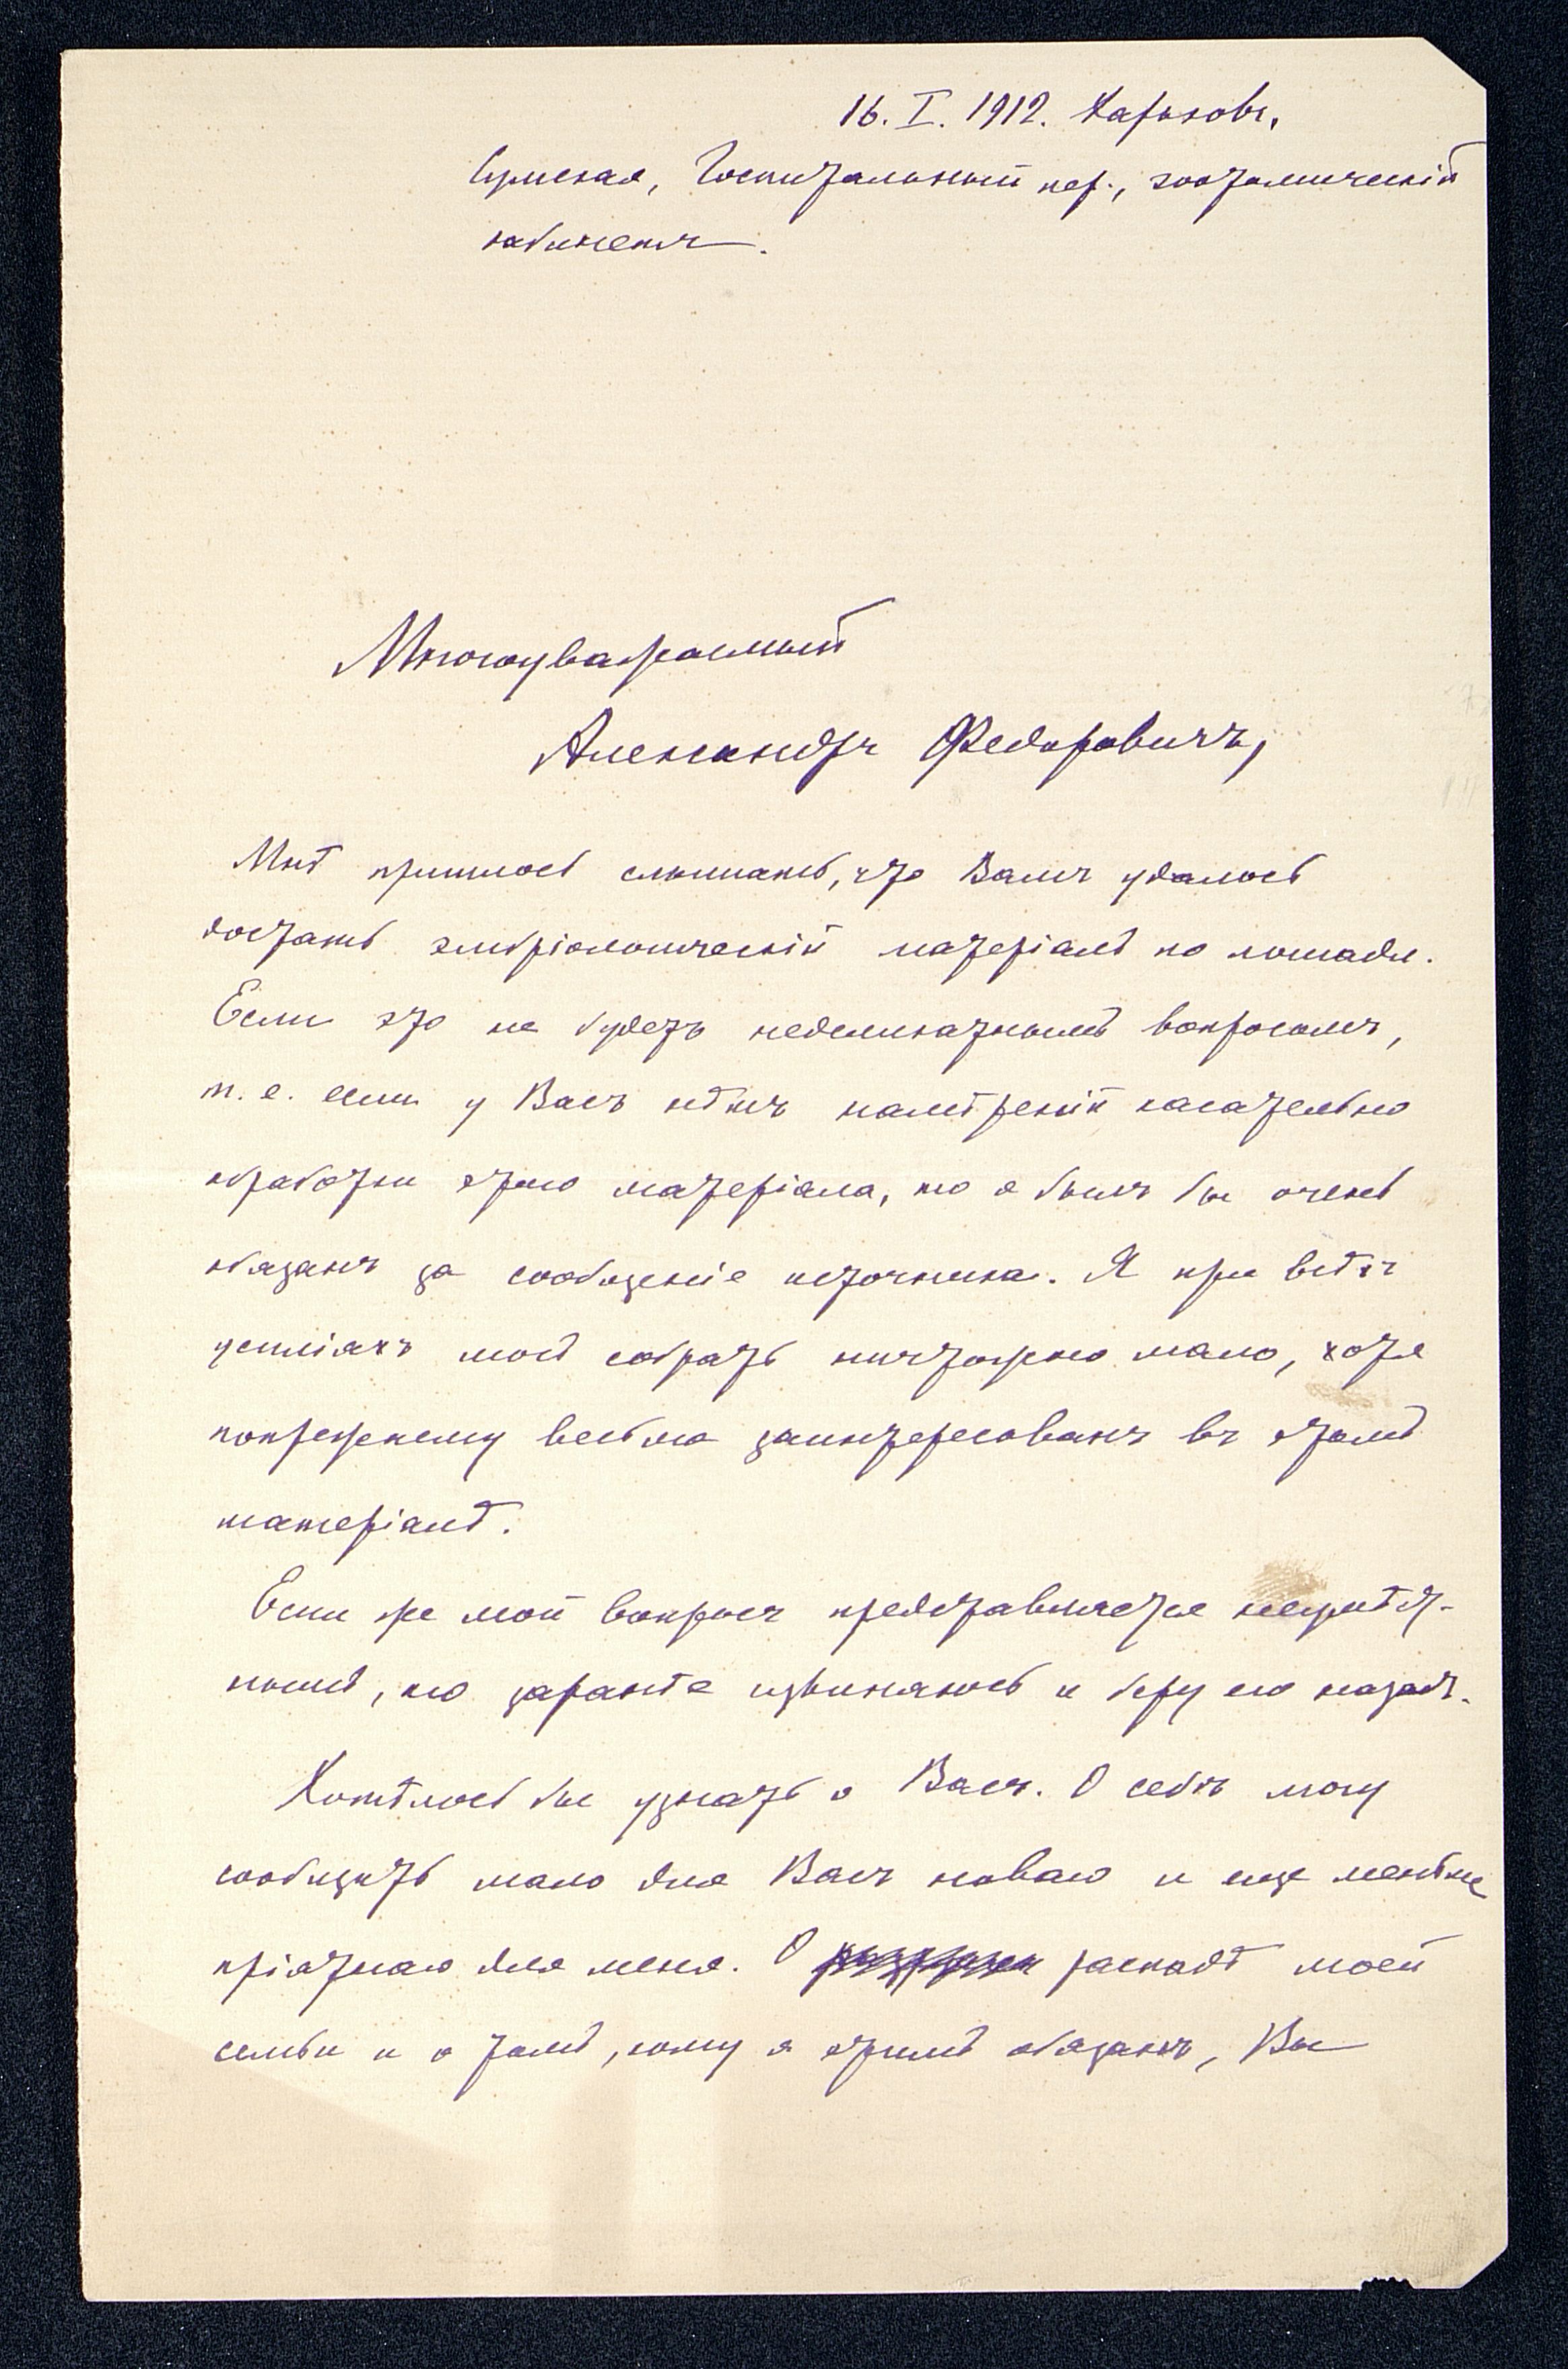 16. I. 1912. Харьковъ,
Сумская, Госпитальный пер., зоотомическій
кабинетъ.
Многоуважаемый
Александръ Федоровичъ,
Мнѣ пришлось слышать, что Вамъ удалось
достать эмбріологическій матеріалъ по лошади.
Если это не будетъ неделикатнымъ вопросомъ,
т. е. если у Васъ нѣтъ намѣреній касательно
обработки этого матеріала, то я былъ бы очень
обязанъ за сообщеніе источника. Я при всѣхъ
усиліяхъ могъ собрать ничтожно мало, хотя
попрежнему весьма заинтересованъ въ этомъ
матеріалѣ.
Если же мой вопросъ представляется неумѣст-
нымъ, то заранѣе извиняюсь и беру его назадъ.
Хотѣлось бы узнать о Васъ. О себѣ могу
сообщить мало для Васъ новаго и еще меньше
пріятнаго для меня. О распадѣ моей
семьи и о томъ, кому я этимъ обязанъ, Вы